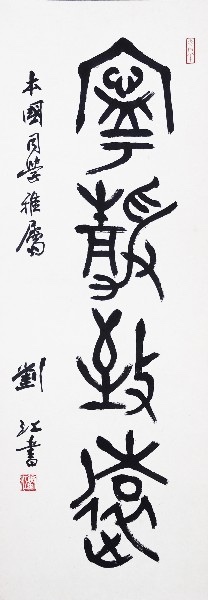 寧靜致遠
本國同學雅屬
劉江書